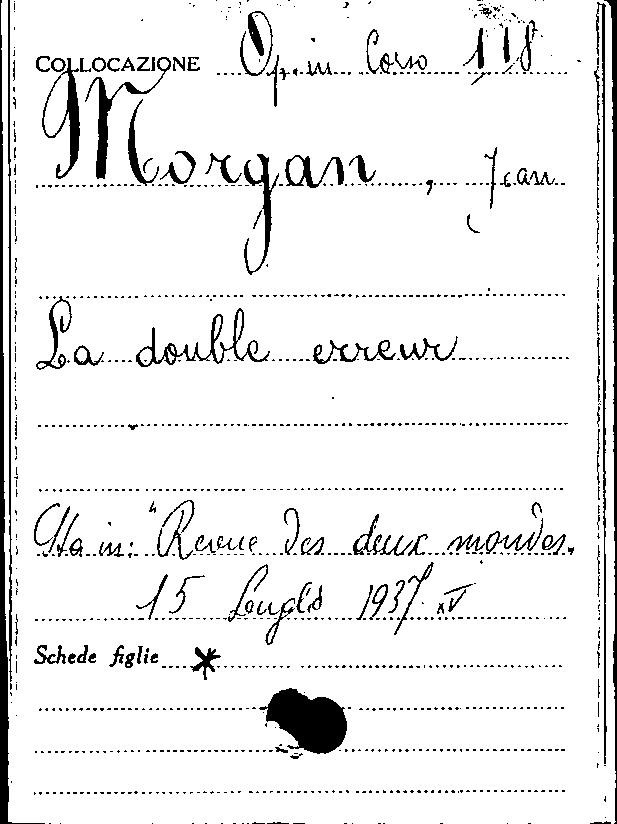 COLLOCAZIONE Op. in Corso 118
Morgan, Jean
La double erreur
Sta in: "Revue des deux mondes.
15 Luglio 1937. XV
Schede figlie *